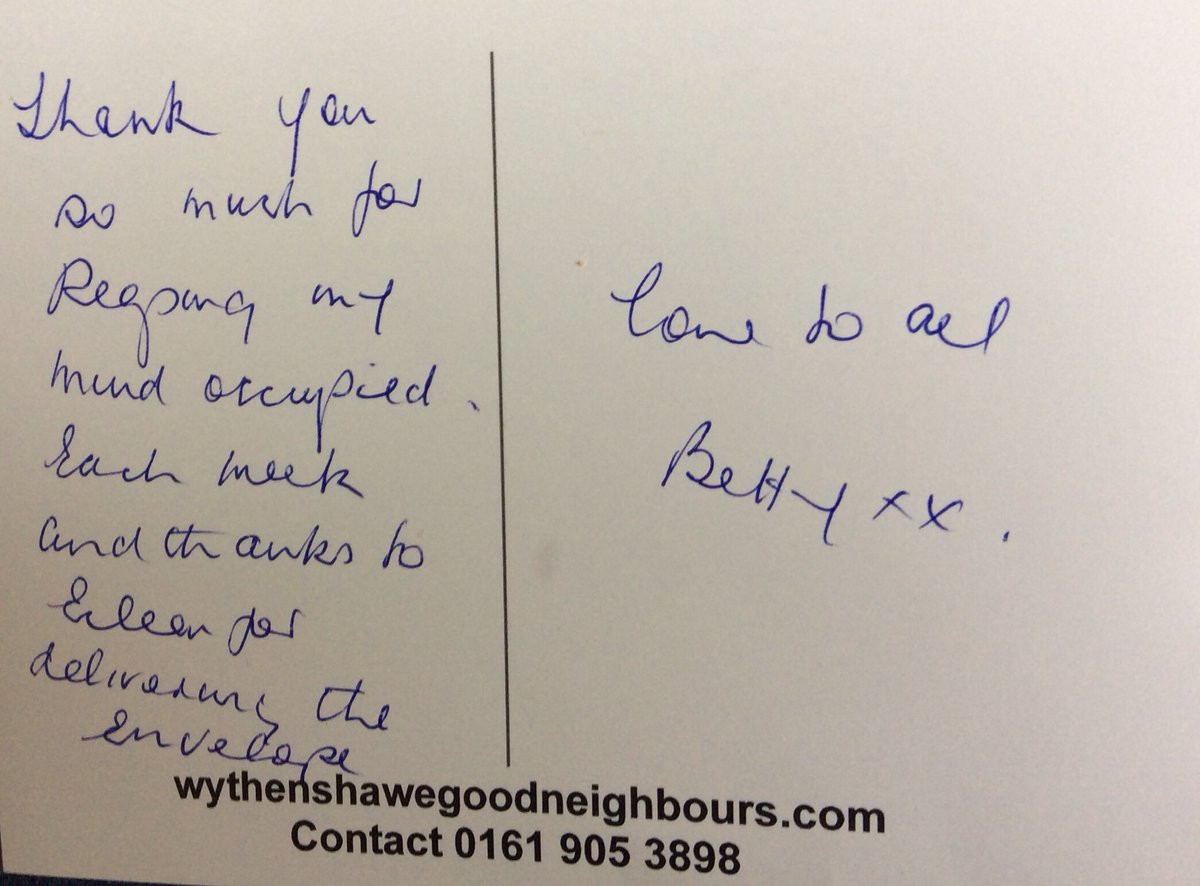 Thank you
so much for
Keeping my
mind occupied.
Each week
and thanks to
Eileen for
delivering the
envelope
Love to all
Betty xx.
wythenshawegoodneighbours.com
Contact 0161 905 3898